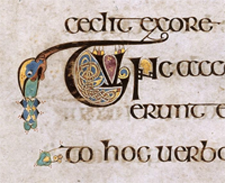 cedit exore
Tunc acce
erunt e
to hoc uerbo